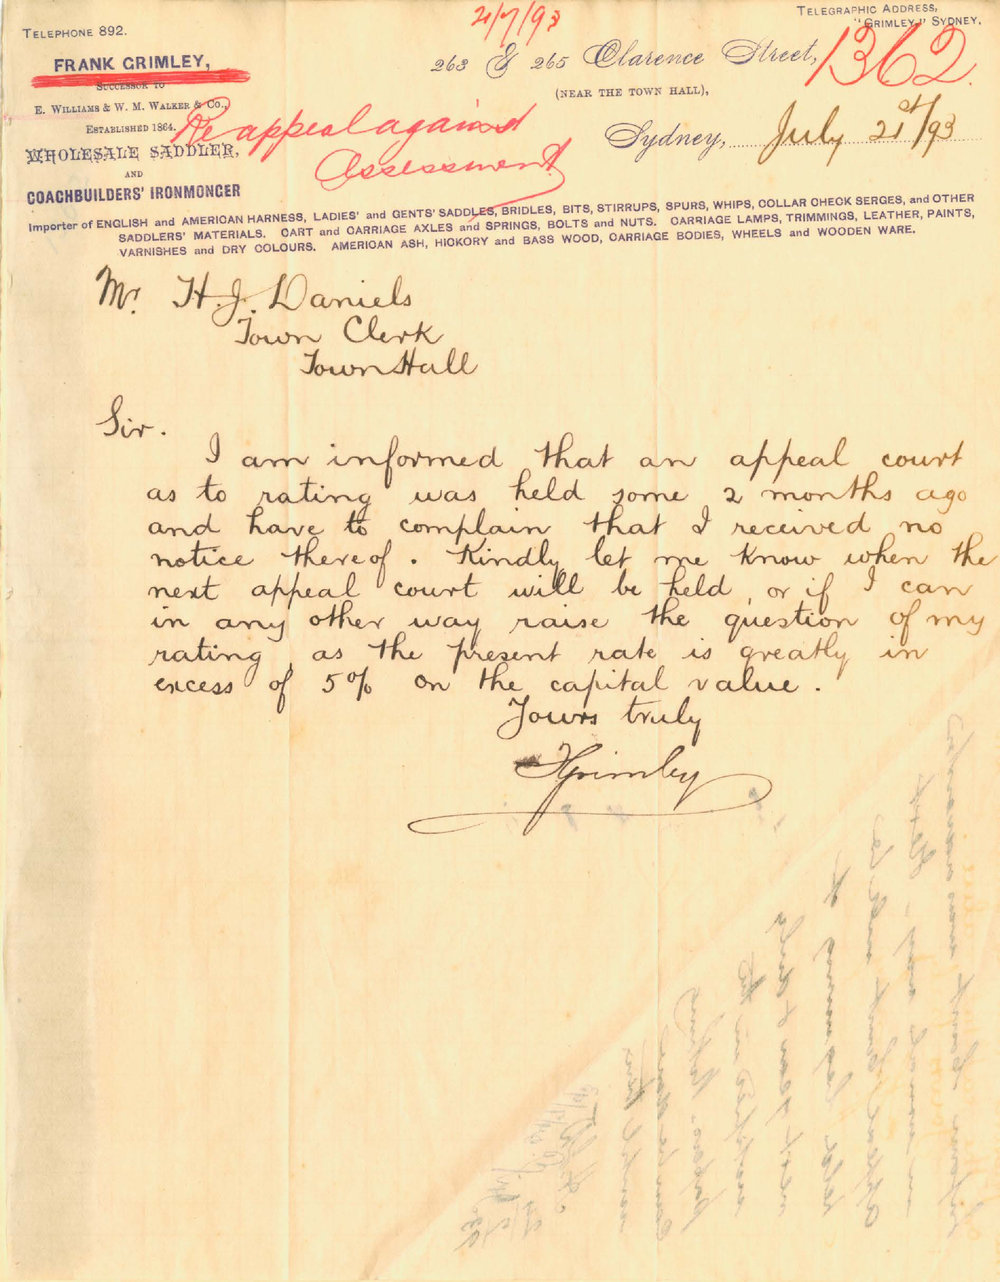 21/7/93
TELEPHONE 892.
TELEGRAPHIC ADDRESS,
"GRIMLEY," SYDNEY.
FRANK GRIMLEY,
SUCCESSOR TO
E. WILLIAMS & W. M. WALKER & Co.,
ESTABLISHED 1864.
WHOLESALE SADDLER,
AND
COACHBUILDERS' IRONMONGER
263 & 265 Clarence Street,
(NEAR THE TOWN HALL),
1362
Re appeal against
Assessment
Sydney, July 21st/93
Importer of ENGLISH and AMERICAN HARNESS, LADIES' and GENTS' SADDLES, BRIDLES, BITS, STIRRUPS, SPURS, WHIPS, COLLAR CHECK SERGES, and OTHER
SADDLERS' MATERIALS. CART and CARRIAGE AXLES and SPRINGS, BOLTS and NUTS. CARRIAGE LAMPS, TRIMMINGS, LEATHER, PAINTS,
VARNISHES and DRY COLOURS. AMERICAN ASH, HICKORY and BASS WOOD, CARRIAGE BODIES, WHEELS and WOODEN WARE.
Mr. H. J. Daniels
Town Clerk
Town Hall
Sir.
I am informed that an appeal court
as to rating was held some 2 months ago
and have to complain that I received no
notice thereof. Kindly let me know when the
next appeal court will be held, or if I can
in any other way raise the question of my
rating, as the present rate is greatly in
excess of 5% on the capital value.
Yours truly
F Grimley